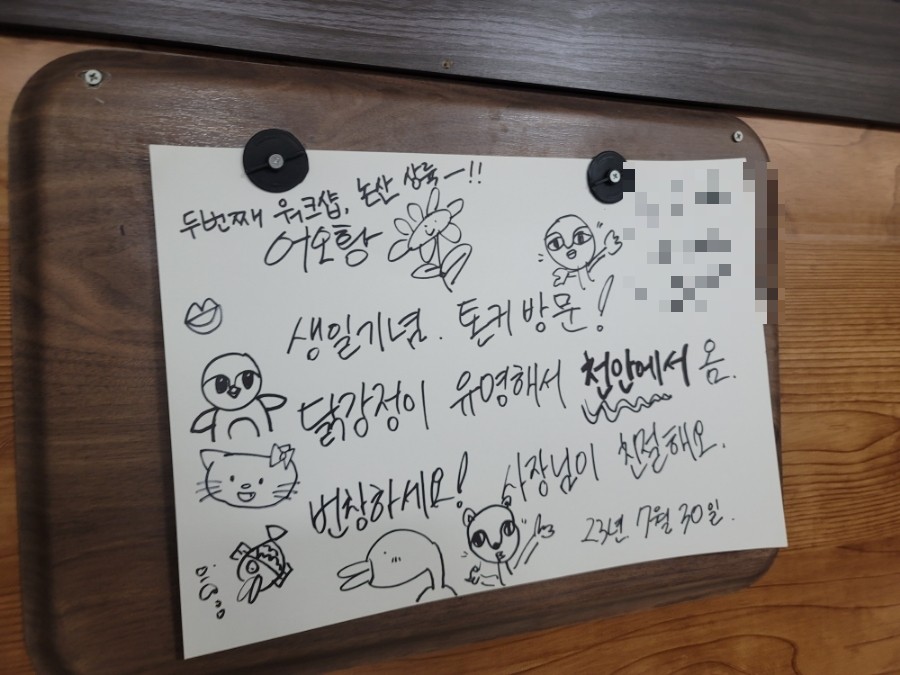 두번째 워크샵, 논산 상륙—!!
어오황
생일기념. 톤커 방문!
닭강정이 유명해서 천안에서 옴.
번창하세요! 사장님이 친절해요.
23년 7월 30일.